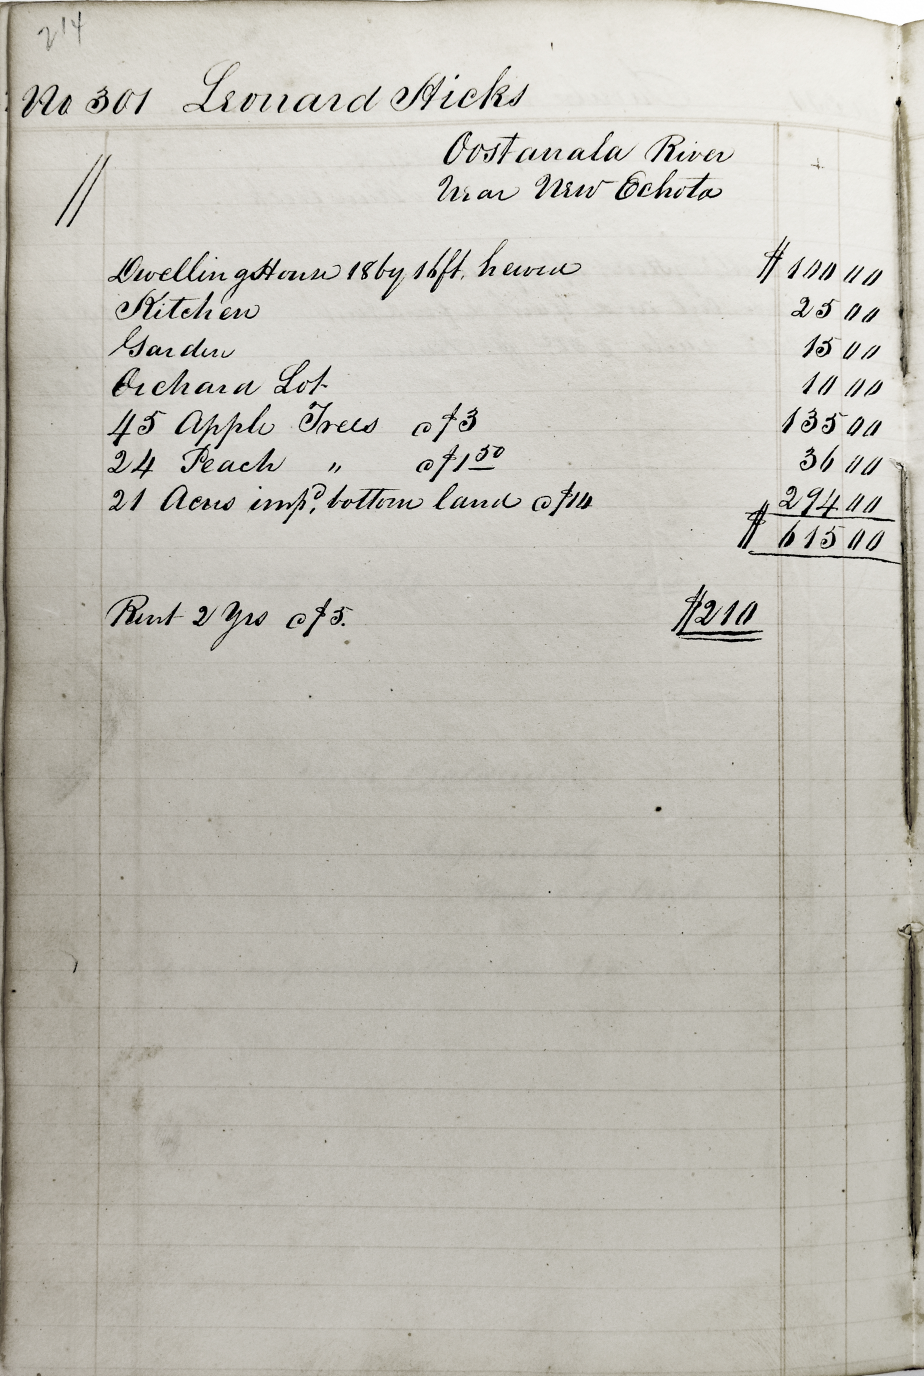 214
No 301 Leonard Hicks
Oostanala River
Near New Echota
//
Dwelling House 18 by 16 ft. hewed $100 00
Kitchen 25 00
Garden 15 00
Orchard Lot 10 00
45 Apple Trees @ $3 135 00
24 Peach " @ $1 50 36 00
21 Acres impd. bottom land @ $14 294 00
$ 615 00
Rent 2 Yrs @ $5. $210